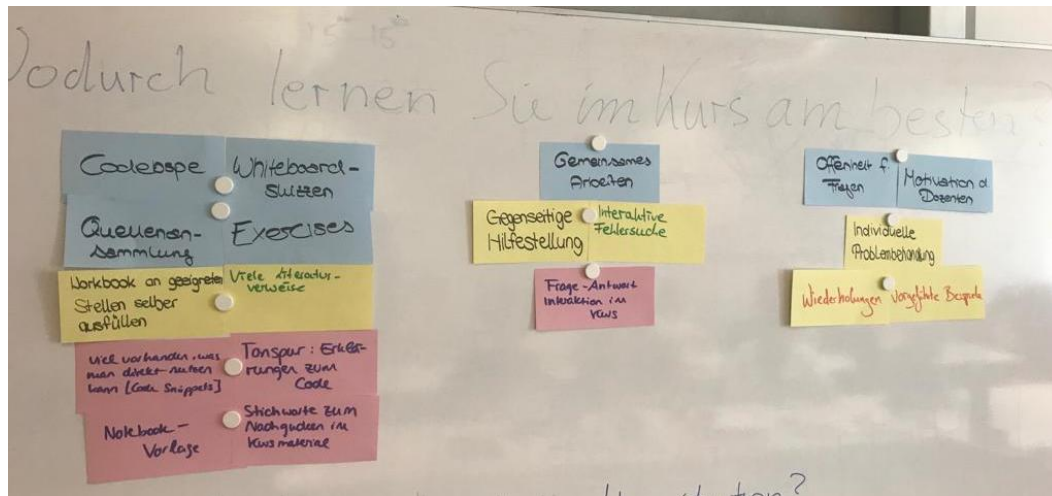 Wodurch lernen Sie im Kurs am besten?
Codebspe
Whiteboard-
skizzen
Quellen
sammlung
Exercises
Workbook an geeigneten
Stellen selber
ausfüllen
Viele Literatur-
verweise
viel vorhanden, was
man direkt nutzen
kann [Code Snippets]
Tonspur: Erklär-
rungen zum
Code
Notebook-
Vorlage
Stichworte zum
Nachgucken im
Kursmaterial
Gemeinsames
Arbeiten
Gegenseitige
Hilfestellung
Interaktive
Fehlersuche
Frage-Antwort
Interaktion im
Kurs
Offenheit f.
Fragen
Motivation d.
Dozenten
Individuelle
Problembehandlung
Wiederholungen
Vorgeführte Beispiele